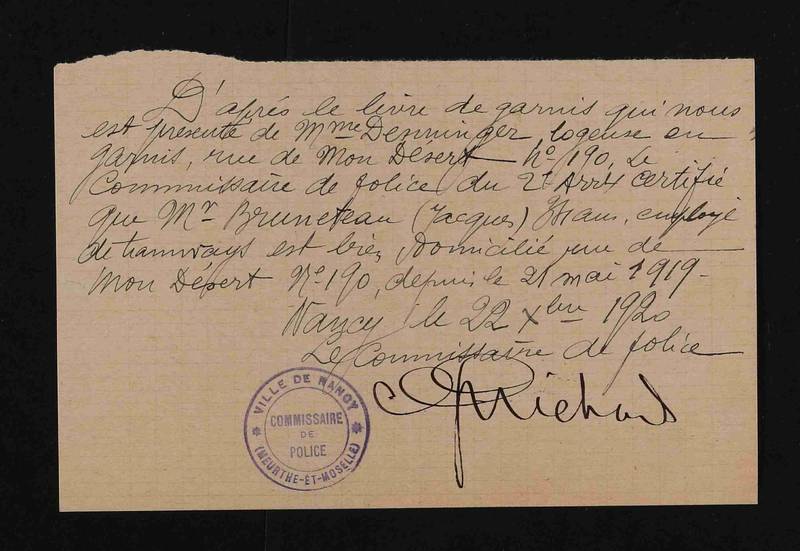 D'après le livre de garnis qui nous
est présenté de Mme Denninger, logeuse en
garnis, rue de Mon Désert Nº 190, Le
Commissaire de Police du 2e Arrt certifie
que Mr Bruneteau (Jacques) employé
de tramways est bien domicilié rue de
Mon Désert Nº 190, depuis le 21 mai 1919.
Nancy le 22 Xbre 1920
Le Commissaire de police
Michard
VILLE DE NANCY
COMMISSAIRE
DE
POLICE
(MEURTHE-ET-MOSELLE)